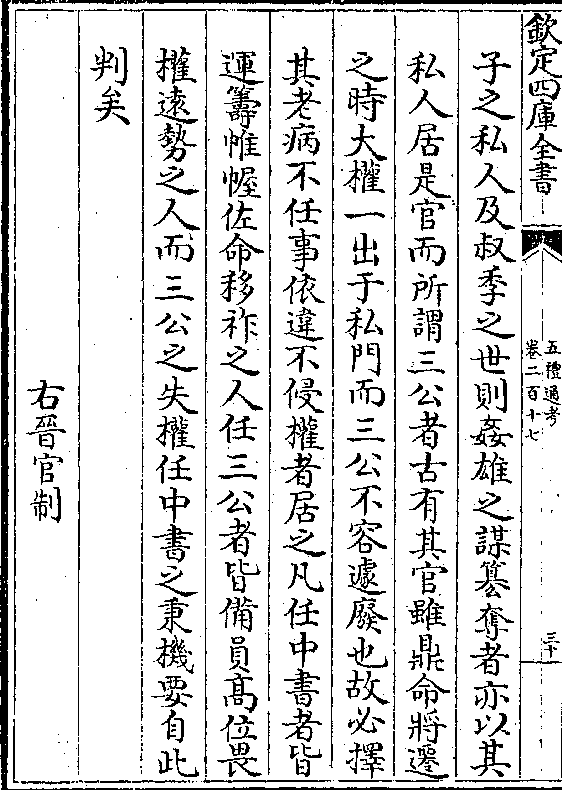 欽定四庫全書
五禮通考
卷二百十七
三十
子之私人及叔季之世則姦雄之謀簒奪者亦以其
私人居是官而所謂三公者古有其官雖鼎命將遷
之時大權一出于私門而三公不容遽廢也故必擇
其老病不任事依違不侵權者居之凡任中書者皆
運籌帷幄佐命移祚之人任三公者皆備員高位畏
權遠勢之人而三公之失權任中書之秉機要自此
判矣
右晉官制